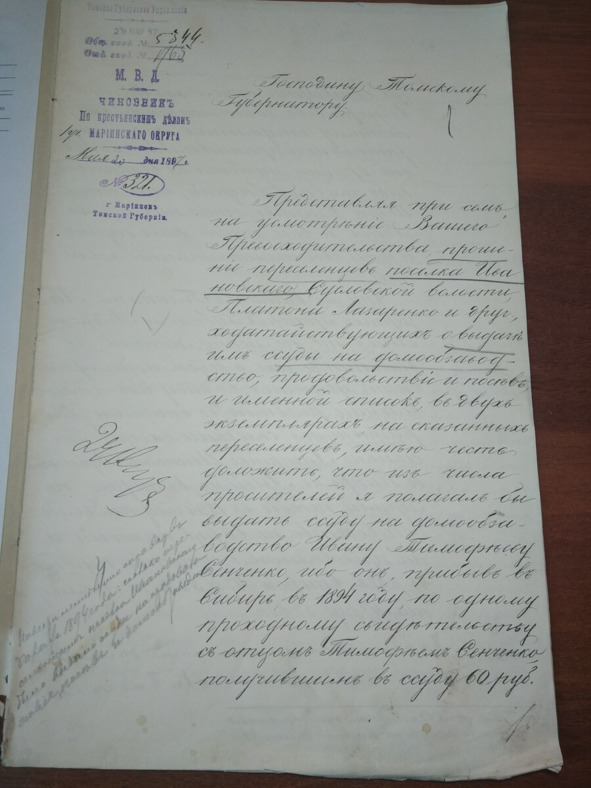 Томское Губернское Управленіе
Общ. вход. № 5344.
Отд. вход. № 1763
М. В. Д.
ЧИНОВНИКЪ
По крестьянскимъ дѣламъ
МАРІИНСКАГО ОКРУГА
Мая 20 дня 1897 г.
№ 321.
г. Маріинскъ
Томской Губерніи.
Господину Томскому
Губернатору.
Представляя при семъ,
на усмотрѣніе Вашего
Превосходительства проше-
ніе переселенцевъ поселка Ива-
новскаго, Сусловской волости,
Платона Лазаренко и друг.,
ходатайствующихъ о выдачѣ
имъ ссуды на домообзавод-
ство, продовольствіе и посѣвъ,
и именной списокъ, въ двухъ
экземплярахъ на сказанныхъ
переселенцевъ, имѣю честь
доложить, что изъ числа
просителей я полагалъ бы
выдать ссуду на домообза-
водство Ивану Тимофѣеву
Сенченко, ибо онъ, прибывъ въ
Сибирь въ 1894 году, по одному
проходному свидѣтельству
съ отцомъ Тимофѣемъ Сенченко,
получившимъ въ ссуду 60 руб.